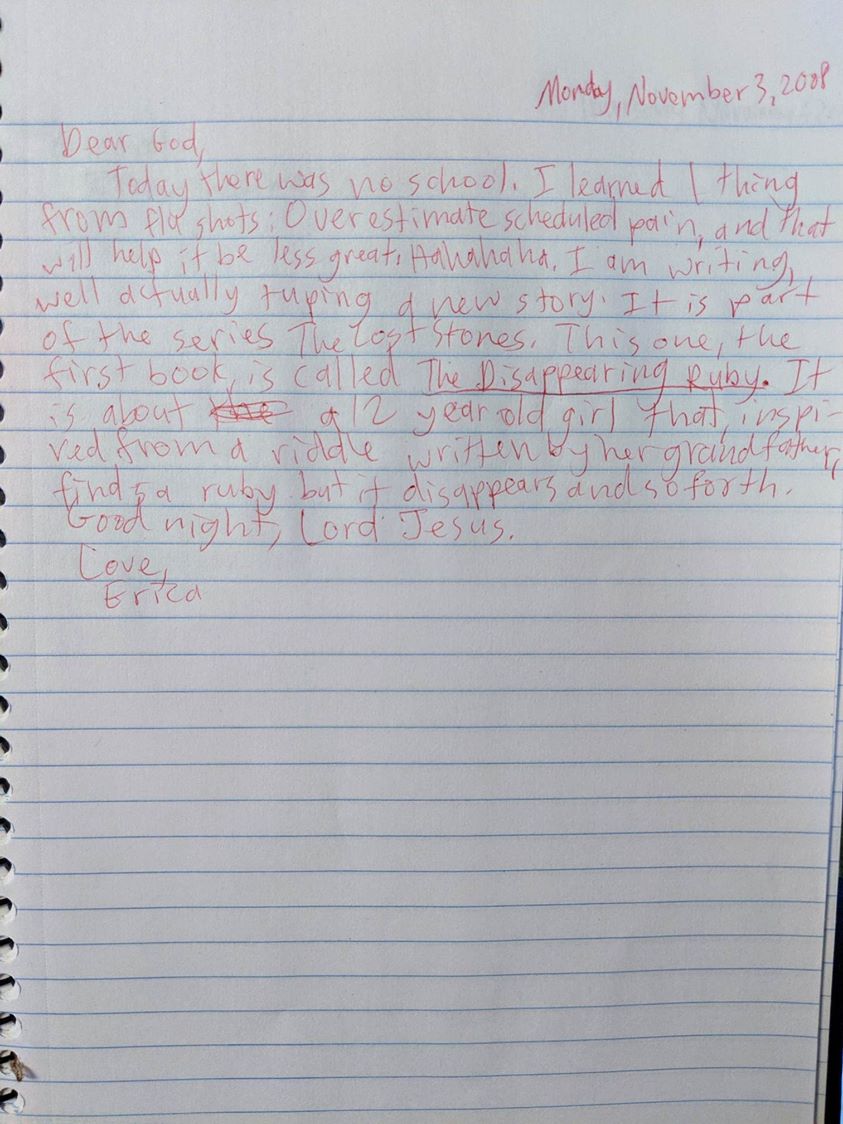 Monday, November 3, 2008
Dear God,
Today there was no school. I learned 1 thing
from flu shots: Overestimate scheduled pain, and that
will help it be less great. Hahahaha. I am writing,
well actually tuping a new story. It is part
of the series The Lost Stones. This one, the
first book, is called The Disappearing Ruby. It
is about the a 12 year old girl that, inspi-
red from a riddle written by her grandfather,
finds a ruby but it disappears and so forth.
Good night, Lord Jesus.
Love,
Erica